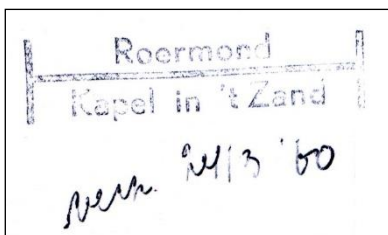 Roermond
Kapel in 't Zand
24/3 '60